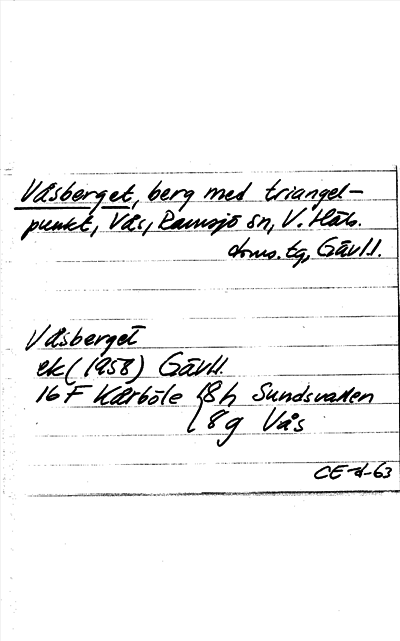 Våsberget, berg med triangel-
punkt, Vås, Ramsjö sn, V. Häls.
doms. tg, Gävll.
Våsberget
ek (1958) Gävll.
16 F Kårböle { 8h Sundsvallen
8g Vås
CE -d-63